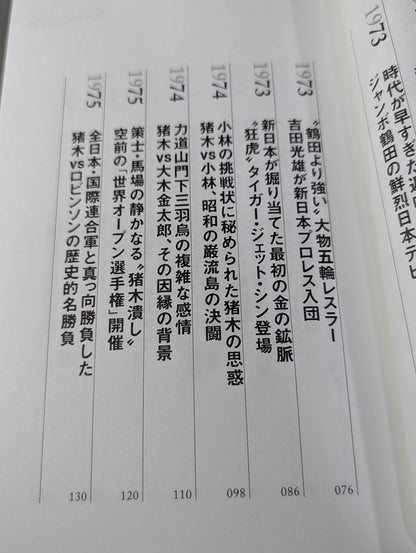 1973
時代が早すぎた
ジャンボ鶴田の鮮烈日本デビ
1973
〝鶴田より強い〟大物五輪レスラー
吉田光雄が新日本プロレス入団
076
1973
新日本が掘り当てた最初の金の鉱脈
〝狂虎〟タイガー・ジェット・シン登場
086
1974
小林の挑戦状に秘められた猪木の思惑
猪木vs小林、昭和の巌流島の決闘
098
1974
力道山門下三羽烏の複雑な感情
猪木vs大木金太郎、その因縁の背景
110
1975
策士・馬場の静かなる〝猪木潰し〟
空前の「世界オープン選手権」開催
120
1975
全日本・国際連合軍と真っ向勝負した
猪木vsロビンソンの歴史的名勝負
130